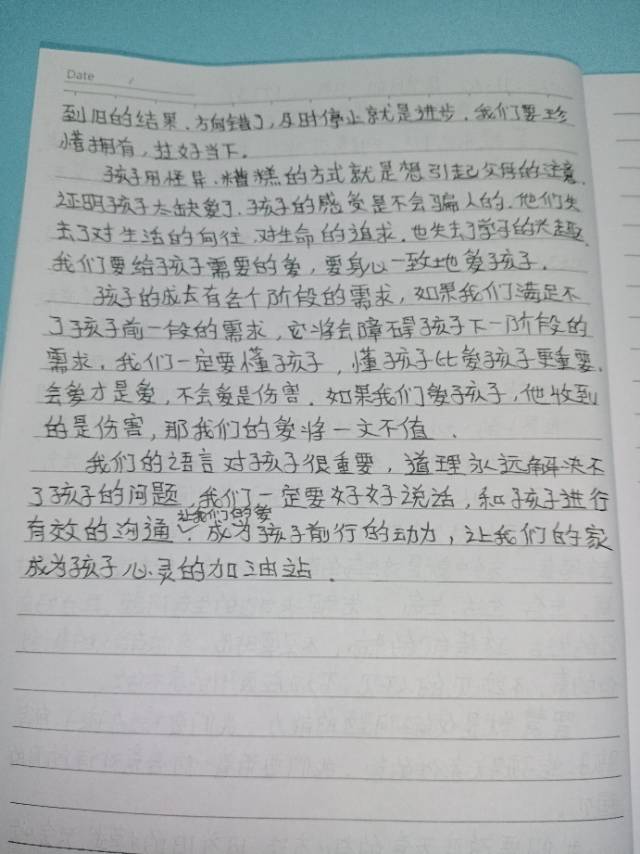 Date
到旧的结果、方向错了,及时停止就是进步。我们要珍
惜拥有,拄好当下。
孩子用怪异、糟糕的方式就是想引起父母的注意,
证明孩子太缺爱了、孩子的感受是不会骗人的、他们失
去了对生活的向往、对生命的追求、也失去了学子的兴趣、
我们要给孩子需要的爱,要身心一致地爱孩子。
孩子的成长有各个阶段的需求,如果我们满足不
了孩子前一个段的需求,它将会障碍孩子下一阶段的
需求、我们一定要懂孩子,懂孩子比爱孩子更重要、
会爱才是爱,不会爱是伤害、如果我们爱孩子,他收到
的是伤害,那我们的爱将一文不值。
我们的语言对孩子很重要,道理永远解决不
了孩子的问题、我们一定要好好说话,和孩子进行
让我们的爱
有效的沟通、成为孩子前行的动力,让我们的家
成为孩子心灵的加油站。